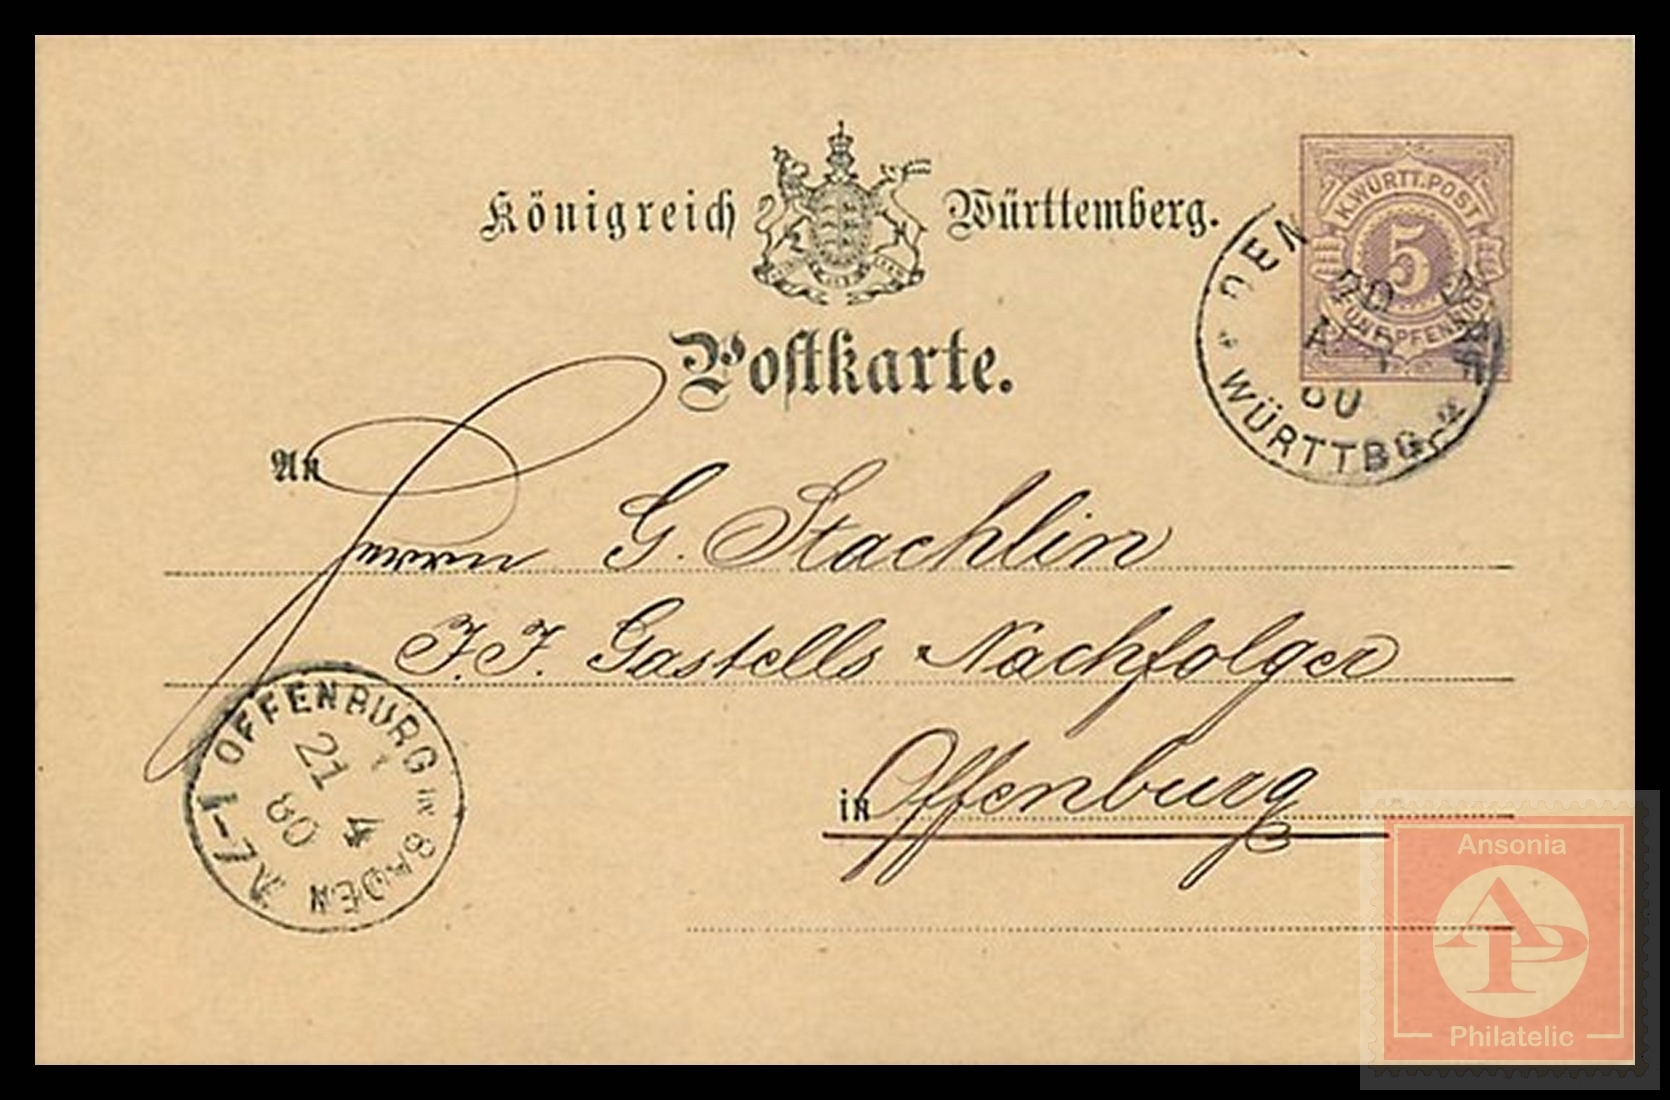 Königreich Württemberg.
K. WÜRTT. POST
5
FÜNF PFENNIG
WÜRTTBG
Postkarte.
An
Herrn G. Staehlin
J. J. Gastells Nachfolger
in Offenburg
OFFENBURG in BADEN
21
4
80
7-
Ansonia
AP
Philatelic